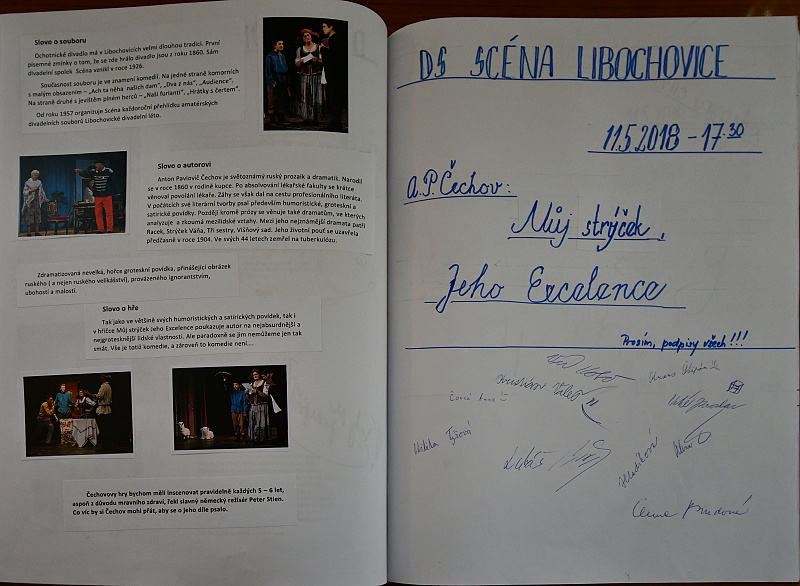 Slovo o souboru
Ochotnické divadlo má v Libochovicích velmi dlouhou tradici. První
písemné zmínky o tom, že se zde hrálo divadlo jsou z roku 1860. Sám
divadelní spolek Scéna vznikl v roce 1926.
Současnost souboru je ve znamení komedií. Na jedné straně komorních
s malým obsazením – „Ach ta něha našich dam", „Dva z nás", „Audience".
Na straně druhé s jevištěm plném herců – „Naši furianti", „Hrátky s čertem".
Od roku 1957 organizuje Scéna každoroční přehlídku amatérských
divadelních souborů Libochovické divadelní léto.
Slovo o autorovi
Anton Pavlovič Čechov je světoznámý ruský prozaik a dramatik. Narodil
se v roce 1860 v rodině kupce. Po absolvování lékařské fakulty se krátce
věnoval povolání lékaře. Záhy se však dal na cestu profesionálního literáta.
V počátcích své literární tvorby psal především humoristické, groteskní a
satirické povídky. Později kromě prózy se věnuje také dramatům, ve kterých
analyzuje a zkoumá mezilidské vztahy. Mezi jeho nejznámější dramata patří
Racek, Strýček Váňa, Tři sestry, Višňový sad. Jeho životní pouť se uzavřela
předčasně v roce 1904. Ve svých 44 letech zemřel na tuberkulózu.
Zdramatizovaná nevelká, hořce groteskní povídka, přinášející obrázek
ruského ( a nejen ruského velikášství), provázeného ignorantstvím,
ubohostí a malostí.
Slovo o hře
Tak jako ve většině svých humoristických a satirických povídek, tak i
v hříčce Můj strýček Jeho Excelence poukazuje autor na nejabsurdnější a
nejgrotesknější lidské vlastnosti. Ale paradoxně se jim nemůžeme jen tak
smát. Vše je totiž komedie, a zároveň to komedie není....
Čechovovy hry bychom měli inscenovat pravidelně každých 5 – 6 let,
aspoň z důvodu mravního zdraví, řekl slavný německý režisér Peter Stien.
Co víc by si Čechov mohl přát, aby se o jeho díle psalo.
DS SCÉNA LIBOCHOVICE
11.5.2018 – 17.30
A. P. Čechov:
Můj strýček,
Jeho Excelence
Prosím, podpisy všech!!!
Lukáš